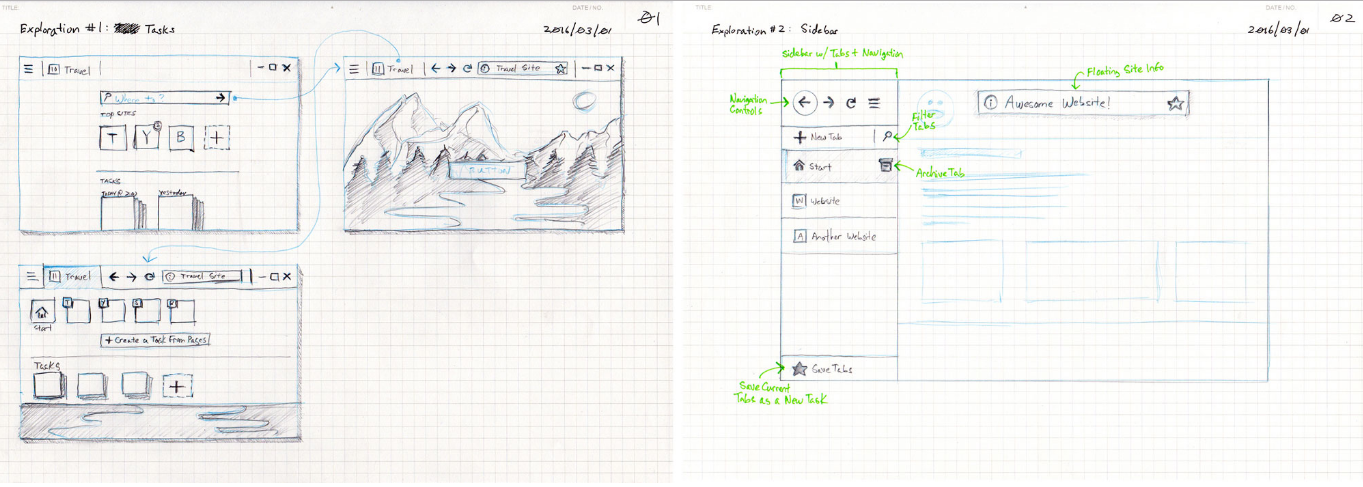 TITLE
DATE/NO.
01
Exploration #1: Tasks
2016/03/01
Travel
Where to?
TOP SITES
T Y B
TASKS
Today @ 2:00
Yesterday
Travel
Travel Site
BUTTON
Travel
Travel Site
Start
+ Create a Task From Pages
Tasks
TITLE
DATE/NO.
02
Exploration #2: Sidebar
2016/03/01
Sidebar w/ Tabs + Navigation
Floating Site Info
Navigation Controls
Awesome Website!
Filter
Tabs
New Tab
Start
Archive Tab
W Website
A Another Website
Save Tabs
Save Current
Tabs as a New Task